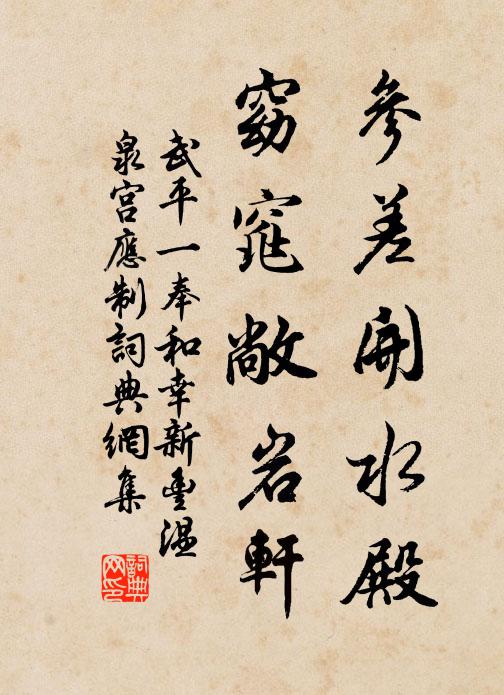 參差開水殿
窈窕敞岩軒
武平一奉和幸新豐溫
泉宮應制詞典網集
詞典
网印